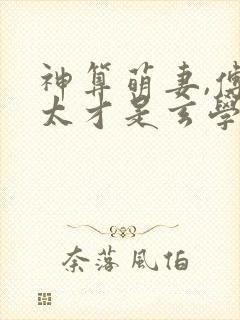 神算萌妻,傅
太才是玄學
奈落風怕